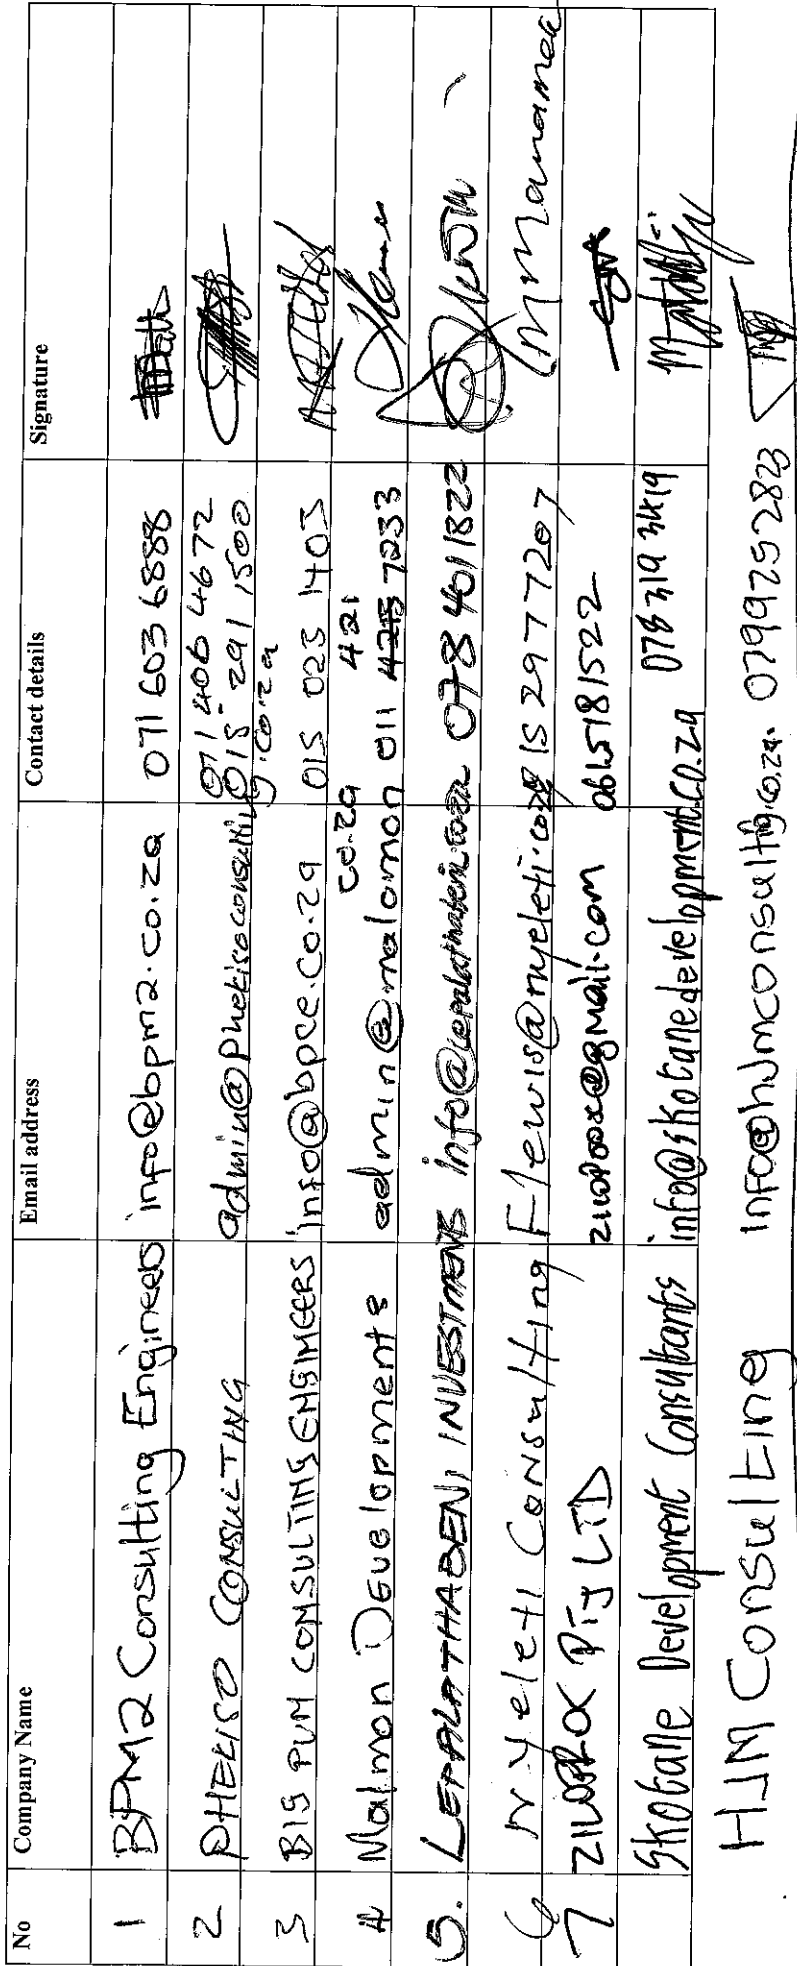 No Company Name Email address Contact details Signature
1 BPM2 Consulting Engineers info@bpm2.co.za 071 603 6888
2 PHELISO CONSULTING admin@phelisoconsulting.co.za 071 406 4672
015 291 1500
3 BIG PUM CONSULTING ENGINEERS info@bpce.co.za 015 023 1403
4 Malmon Developments admin@malomon co.za 011 421 7233
5. LEPALATHABENI INVESTMENTS 078 4011822
6 Nyeleti Consulting Flewis@nyeleti.co.za 015 2977207 MMamamee
7 PTY LTD 0615181522
Skotane Development Consultants info@skotanedevelopment.co.za 078 319 3419
HJM Consulting info@hJmconsulting.co.za. 0799252823